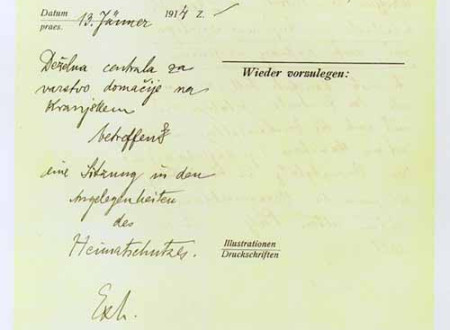 Datum 13. Jänner 1914 Z. /
praes.
Deželna centrala za
varstvo domačije na
Kranjskem
Wieder vorzulegen:
betreffend
eine Sitzung in den
Angelegenheiten
des
Heimatschutzes.
Illustrationen
Druckschriften
Exh.